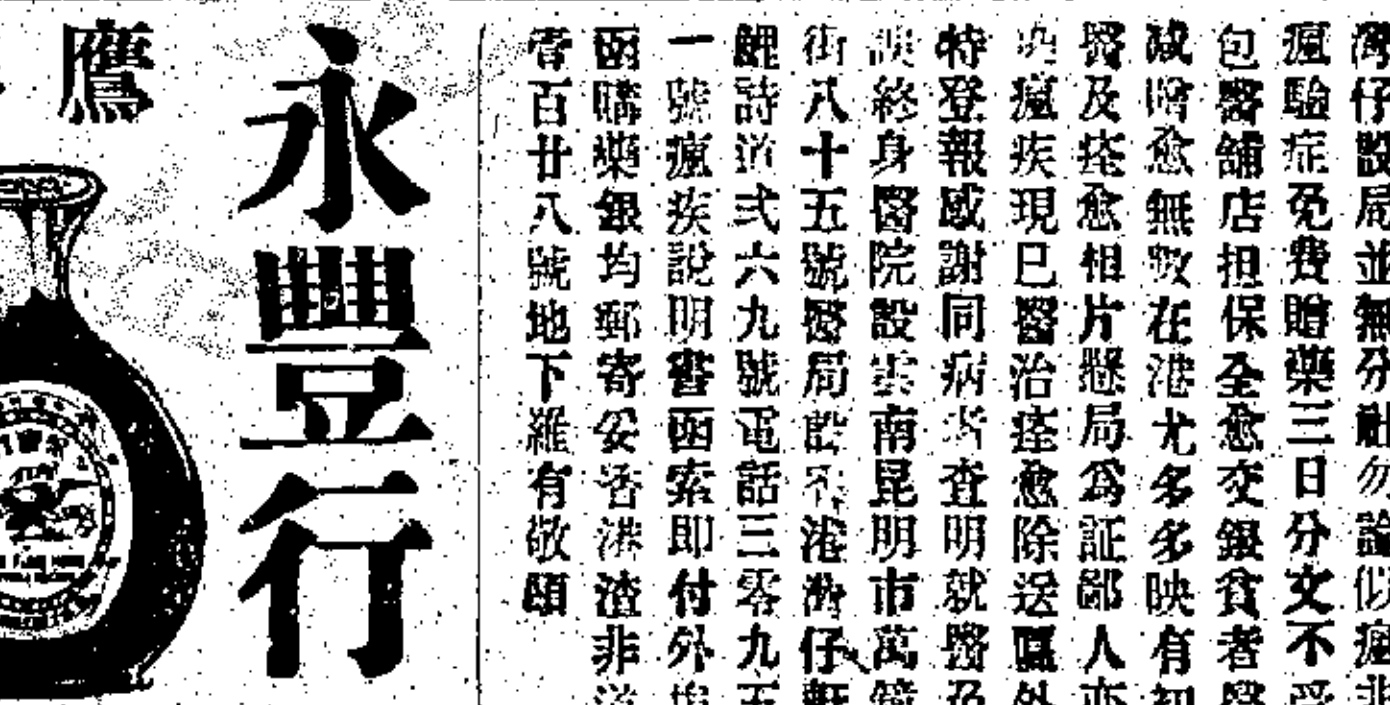 灣仔設局並無分社勿論似瘋非
瘋驗症免費贈藥三日分文不受
包醫舖店担保全愈交銀貧者醫
減噲愈無數在港尤多多映有初
醫及痊愈相片懸局為証鄙人亦
瘋疾現已醫治痊愈除送匾外
特登報感謝同病者查明就醫乃
誤終身醫院設雲南昆明市萬鐘
街八十五號醫局設香港灣仔軒
鯉詩道式六九號電話三零九五
一號瘋疾說明書函索即付外埠
函購藥銀均郵寄妥香港渣非道
壹百廿八號地下羅有敬頌
永豐行
鷹